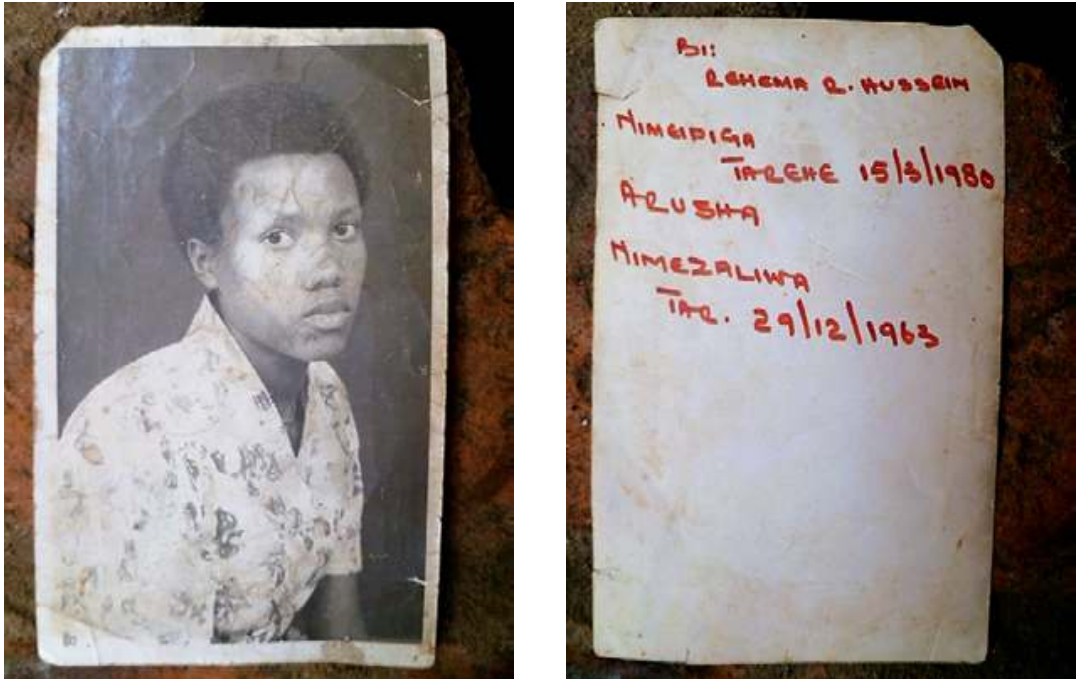 BI:
REHEMA R. HUSSEIN
NIMEIPIGA
TAREHE 15/3/1980
ARUSHA
NIMEZALIWA
TAR. 29/12/1963